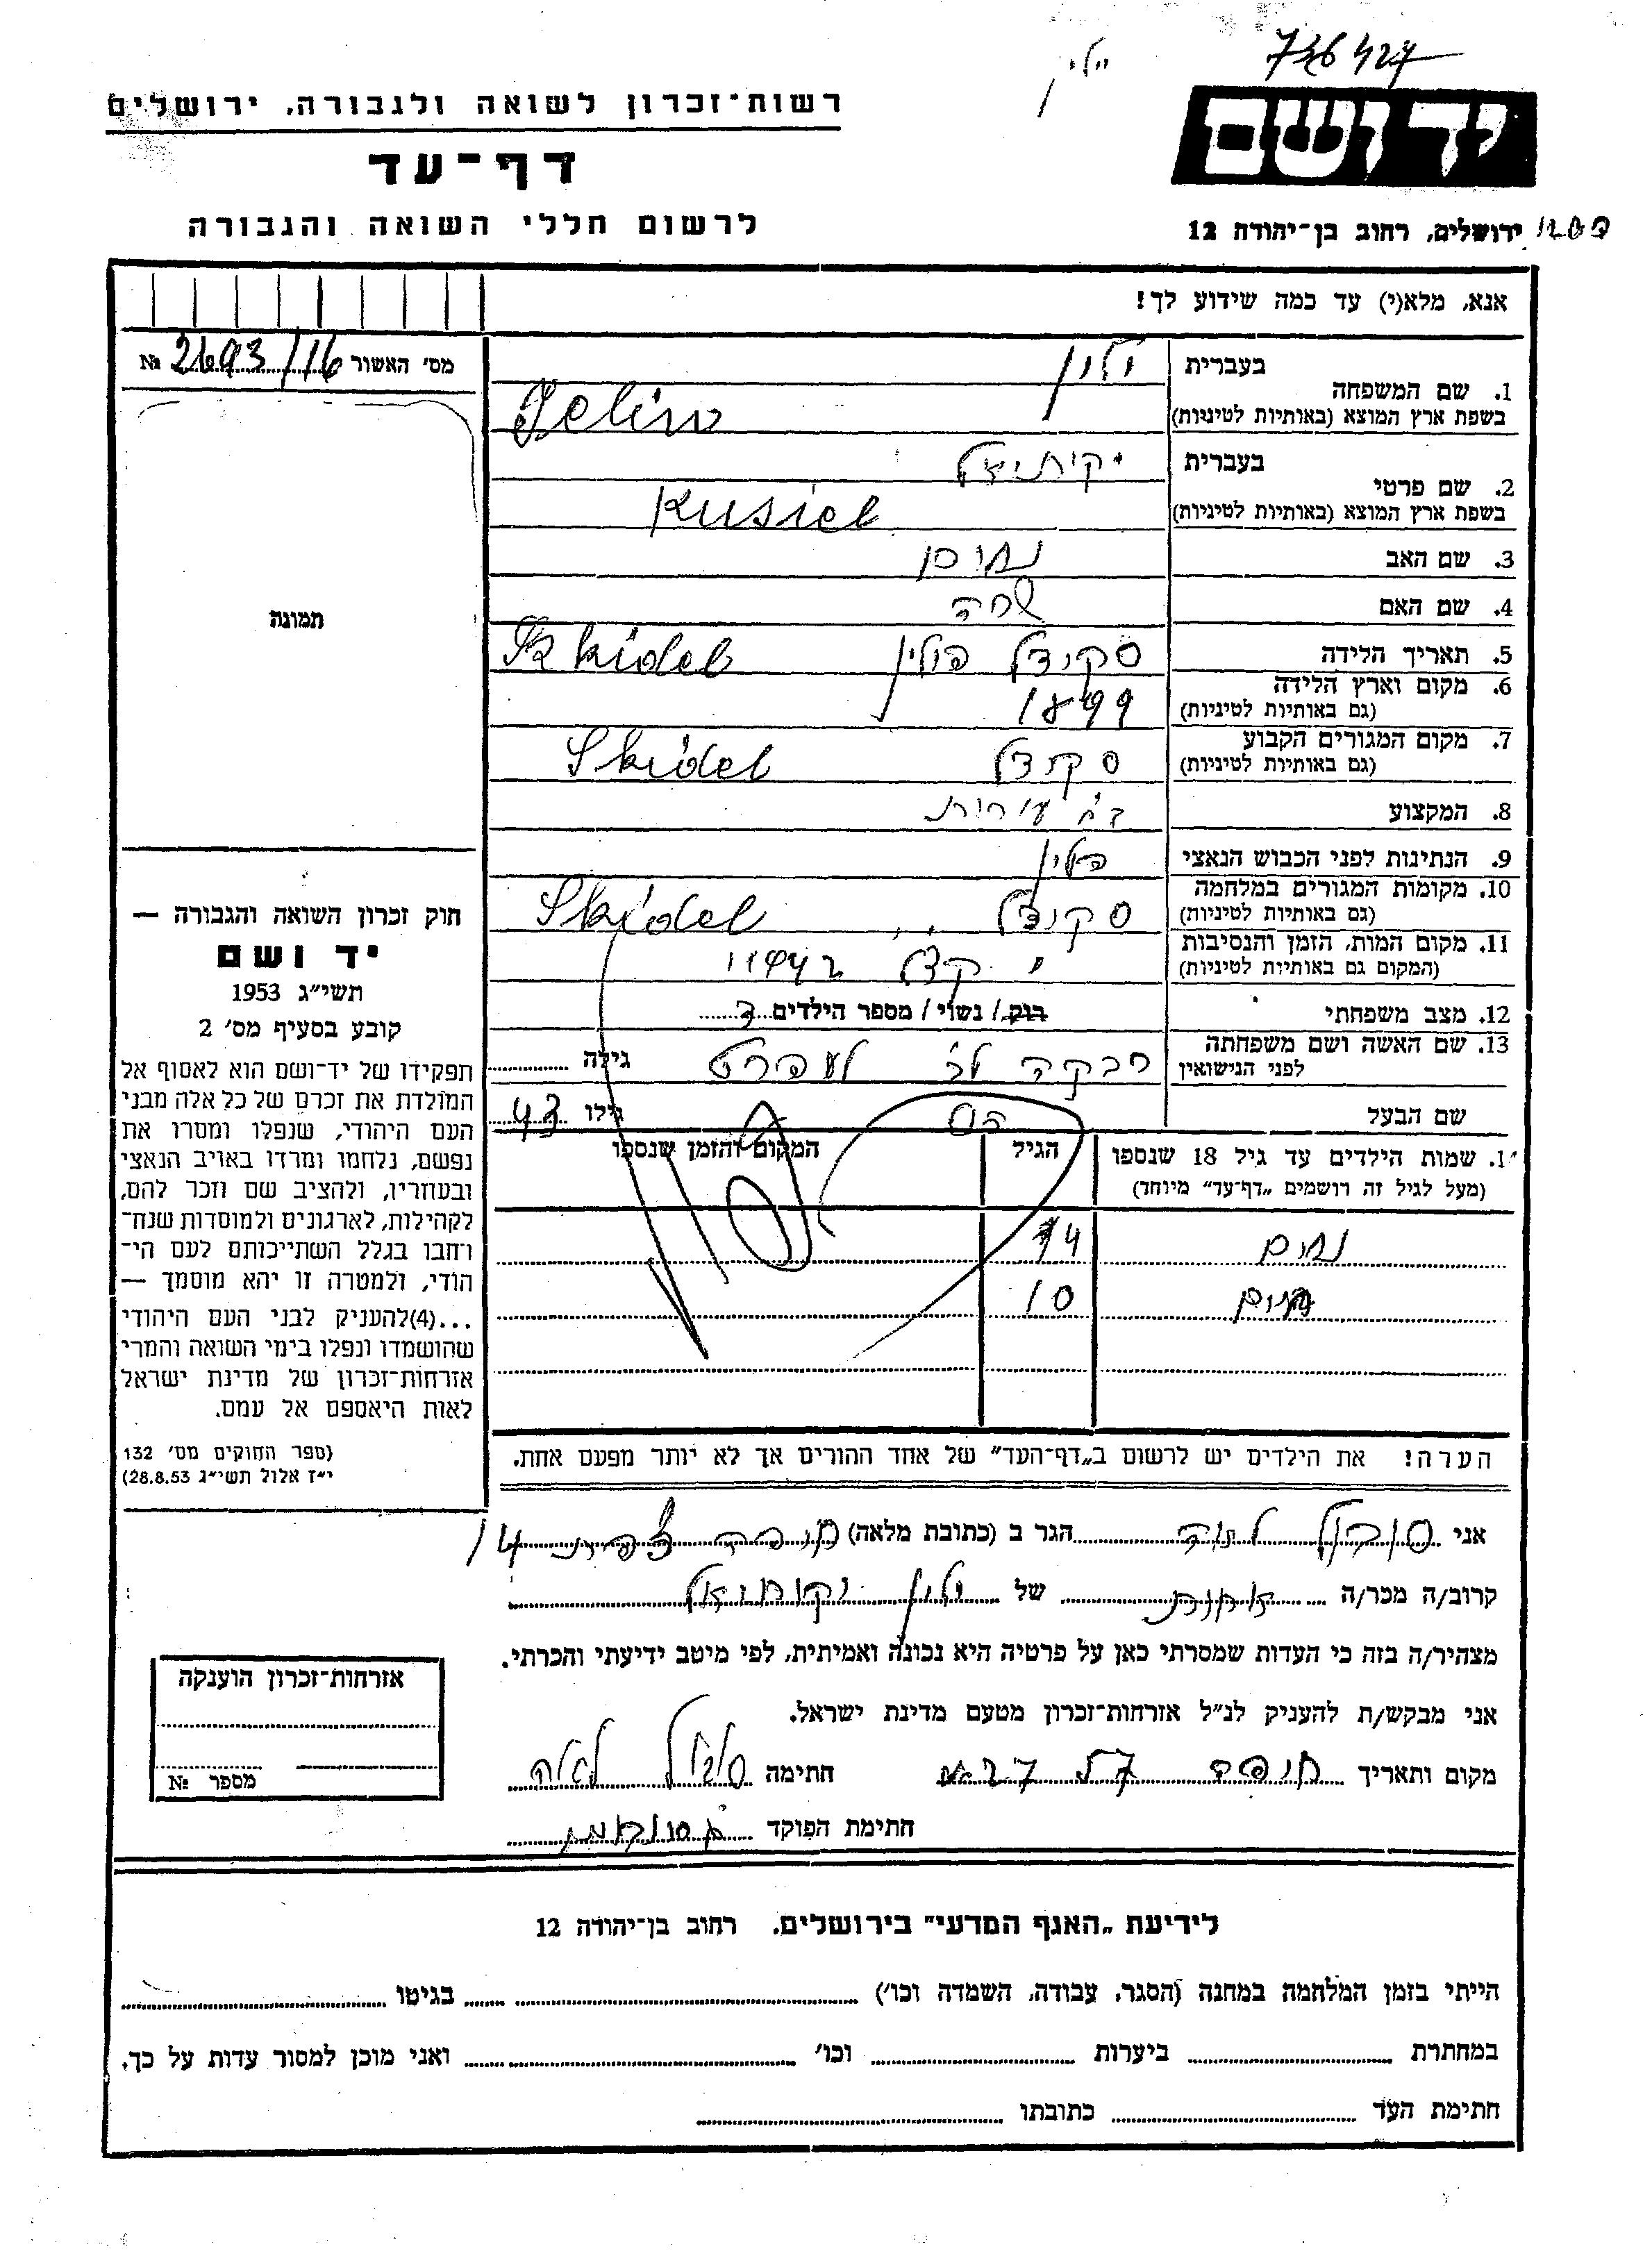 736427
ילין
רשות־זכרון לשואה ולגבורה, ירושלים
יד ושם
דף־עד
לרשום חללי השואה והגבורה
ירושלים, רחוב בן־יהודה 12
אנא, מלא(י) עד כמה שידוע לך!
מס׳ האשור 2693/16 №
1. שם המשפחה
בעברית ילין
בשפת ארץ המוצא (באותיות לטיניות) Jelin
2. שם פרטי
בעברית יקותיאל
בשפת ארץ המוצא (באותיות לטיניות) Kusiel
3. שם האב נחום
4. שם האם שרה
5. תאריך הלידה סקידל פולין Skidel
6. מקום וארץ הלידה
(גם באותיות לטיניות) 1899
7. מקום המגורים הקבוע
(גם באותיות לטיניות) סקידל Skidel
8. המקצוע
9. הנתינות לפני הכבוש הנאצי פולין
10. מקומות המגורים במלחמה
(גם באותיות לטיניות) סקידל Skidel
11. מקום המות, הזמן והנסיבות
(המקום גם באותיות לטיניות) 1942
12. מצב משפחתי רוק / נשוי / מספר הילדים 3
13. שם האשה ושם משפחתה
לפני הנישואין רבקה גילה
שם הבעל גילו 43
14. שמות הילדים עד גיל 18 שנספו
(מעל לגיל זה רושמים „דף־עד״ מיוחד)
הגיל
המקום והזמן שנספו
נחום 14
חיים 10
הערה! את הילדים יש לרשום ב„דף־העד״ של אחד ההורים אך לא יותר מפעם אחת.
אני סובול לאה הגר ב (כתובת מלאה) חיפה 14
קרוב/ה מכר/ה אחות של ילין יקותיאל
מצהיר/ה בזה כי העדות שמסרתי כאן על פרטיה היא נכונה ואמיתית, לפי מיטב ידיעתי והכרתי.
אני מבקש/ת להעניק לנ״ל אזרחות־זכרון מטעם מדינת ישראל.
מקום ותאריך חיפה חתימה סובול לאה
חתימת הפוקד
תמונה
חוק זכרון השואה והגבורה —
יד ושם
תשי״ג 1953
קובע בסעיף מס׳ 2
תפקידו של יד־ושם הוא לאסוף אל
המולדת את זכרם של כל אלה מבני
העם היהודי, שנפלו ומסרו את
נפשם, נלחמו ומרדו באויב הנאצי
ובעוזריו, ולהציב שם וזכר להם,
לקהילות, לארגונים ולמוסדות שנח־
רבו בגלל השתייכותם לעם הי־
הודי, ולמטרה זו יהא מוסמך —
...(4)להעניק לבני העם היהודי
שהושמדו ונפלו בימי השואה והמרי
אזרחות־זכרון של מדינת ישראל
לאות היאספם אל עמם.
(ספר החוקים מס׳ 132
י״ז אלול תשי״ג 28.8.53)
אזרחות־זכרון הוענקה
מספר №
לידיעת „האגף המדעי״ בירושלים. רחוב בן־יהודה 12
הייתי בזמן המלחמה במחנה (הסגר, עבודה, השמדה וכו׳) בגיטו
במחתרת ביערות וכו׳ ואני מוכן למסור עדות על כך.
חתימת העד כתובתו